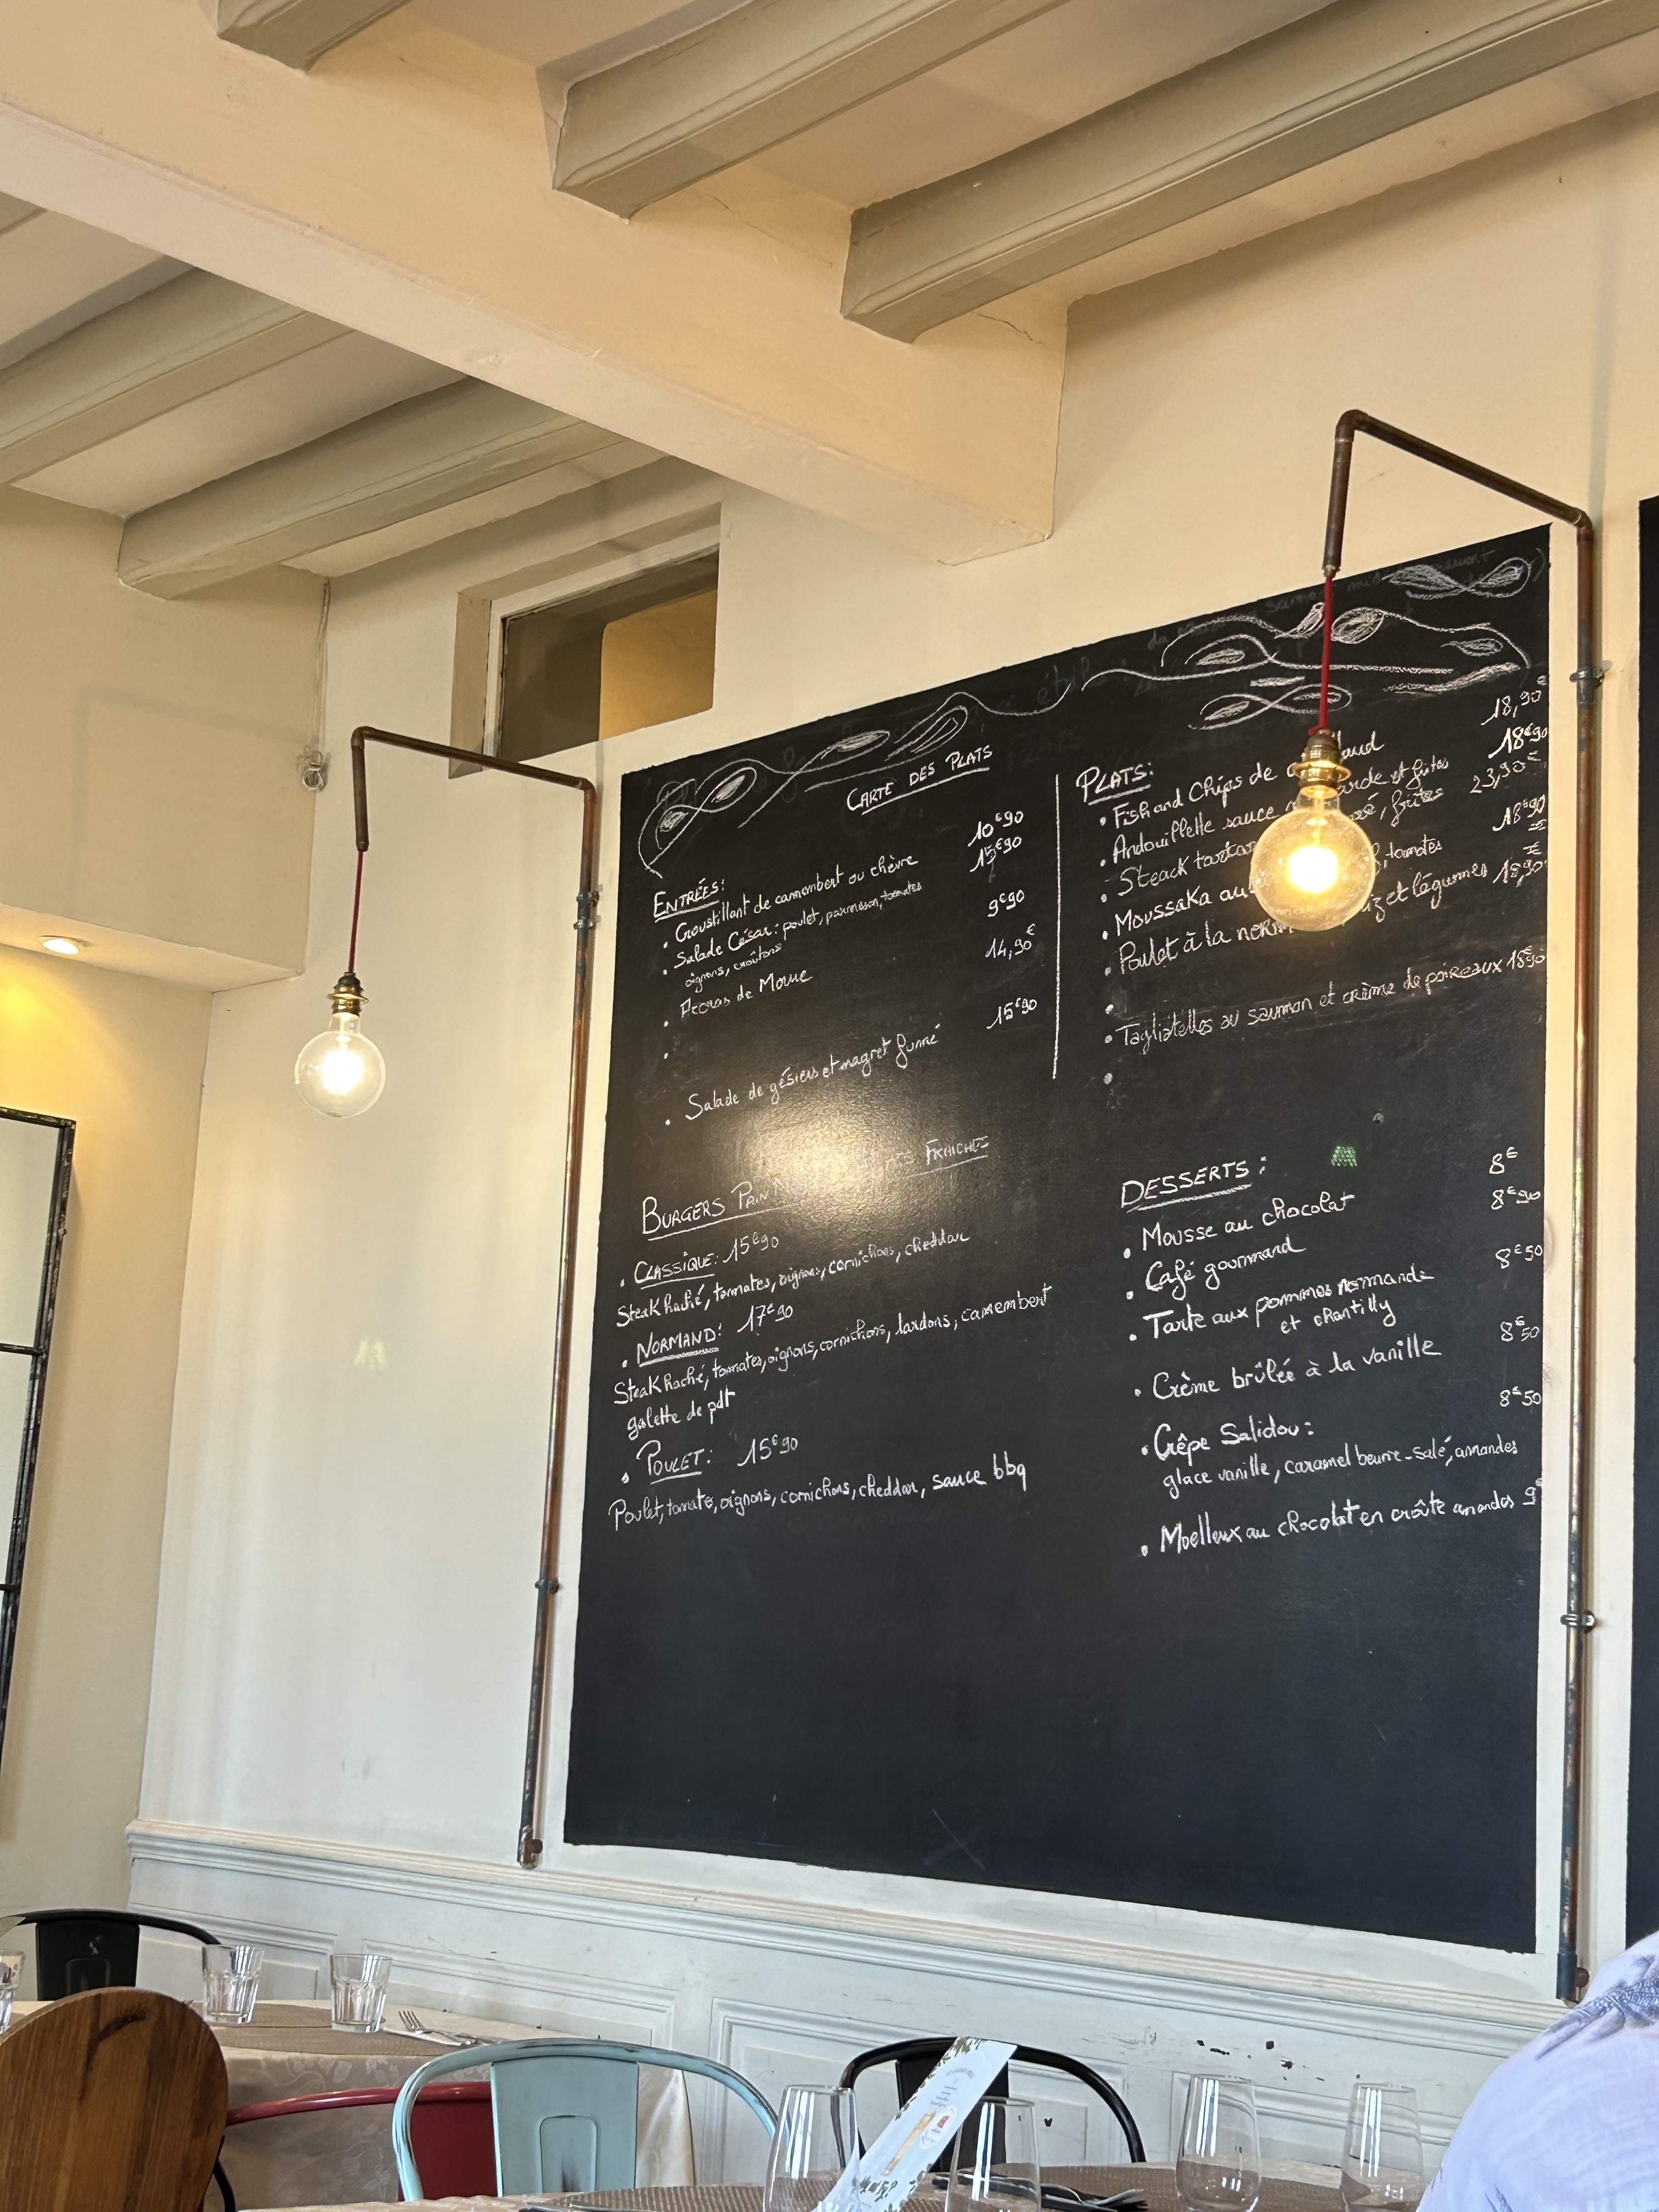 CARTE DES PLATS
ENTRÉES:
• Croustillant de camembert ou chèvre 10€90
• Salade César: poulet, parmesan, tomates 15€90
oignons, croûtons
• Accras de Morue 9€90
• 14,90€
• Salade de gésiers et magret fumé 15€90
BURGERS FRAICHES
• CLASSIQUE: 15€90
Steak haché, tomates, oignons, cornichons, cheddar
• NORMAND: 17€90
Steak haché, tomates, oignons, cornichons, lardons, camembert
galette de pdt
• POULET: 15€90
Poulet, tomates, oignons, cornichons, cheddar, sauce bbq
PLATS:
• Fish and Chips de 18,90€
• Andouillette sauce et frites 18€90
• Steack frites 23,90€
• Moussaka tomates 18€90
• Poulet à la et légumes 18,90€
•
• Tagliatelles au saumon et crème de poireaux 18€90
•
DESSERTS:
• Mousse au chocolat 8€
• Café gourmand 8€90
• Tarte aux pommes normande 8€50
et chantilly
• Crème brûlée à la vanille 8€50
• Crêpe Salidou: 8€50
glace vanille, caramel beurre-salé, amandes
• Moelleux au chocolat en croûte amandes 9€